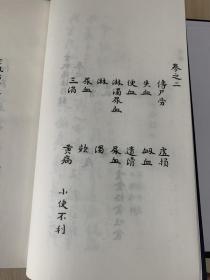 卷之二
傳尸勞 虛損
失血 衂血
便血 遺清
淋濁尿血 尿血
淋 濁
尿血
三消 黄病
小便不利